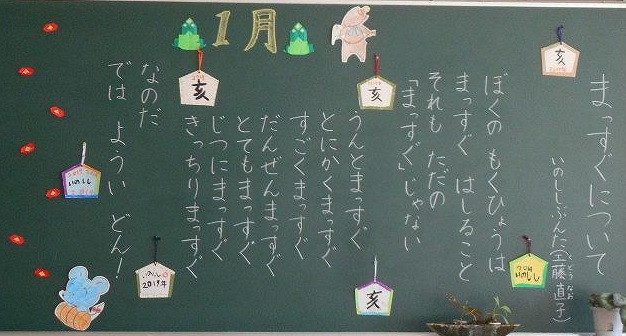 1月
まっすぐについて
いのししぶんた(工藤直子)
くどうなおこ
ぼくの もくひょうは
まっすぐ はしること
それも ただの
「まっすぐ」じゃない
うんとまっすぐ
とにかくまっすぐ
すごくまっすぐ
だんぜんまっすぐ
とてもまっすぐ
じつにまっすぐ
きっちりまっすぐ
なのだ
では ようい どん!
亥
亥
亥
亥
いのしし
いのしし
2019年
いのしし